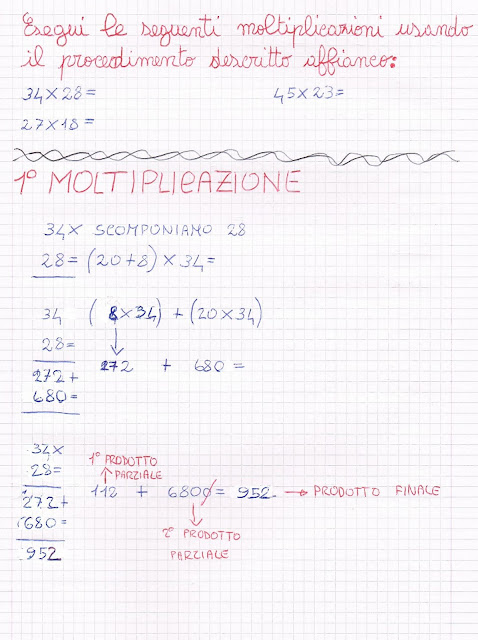 Esegui le seguenti moltiplicazioni usando
il procedimento descritto affianco:
34×28= 45×23=
27×18=
1° MOLTIPLICAZIONE
34× SCOMPONIAMO 28
28= (20+8) × 34=
34 (8×34) + (20×34)
28=
272+ 272 + 680 =
680=
34×
28= 1° PRODOTTO PARZIALE
272+ 112 + 6800 = 952 → PRODOTTO FINALE
680= 2° PRODOTTO PARZIALE
952